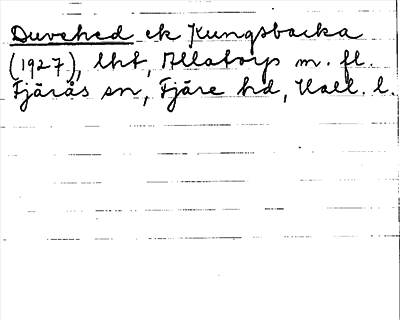 Duvehed ek Kungsbacka
(1927), lht, Allatorp m. fl.
Fjärås sn, Fjäre hd, Hall. l.